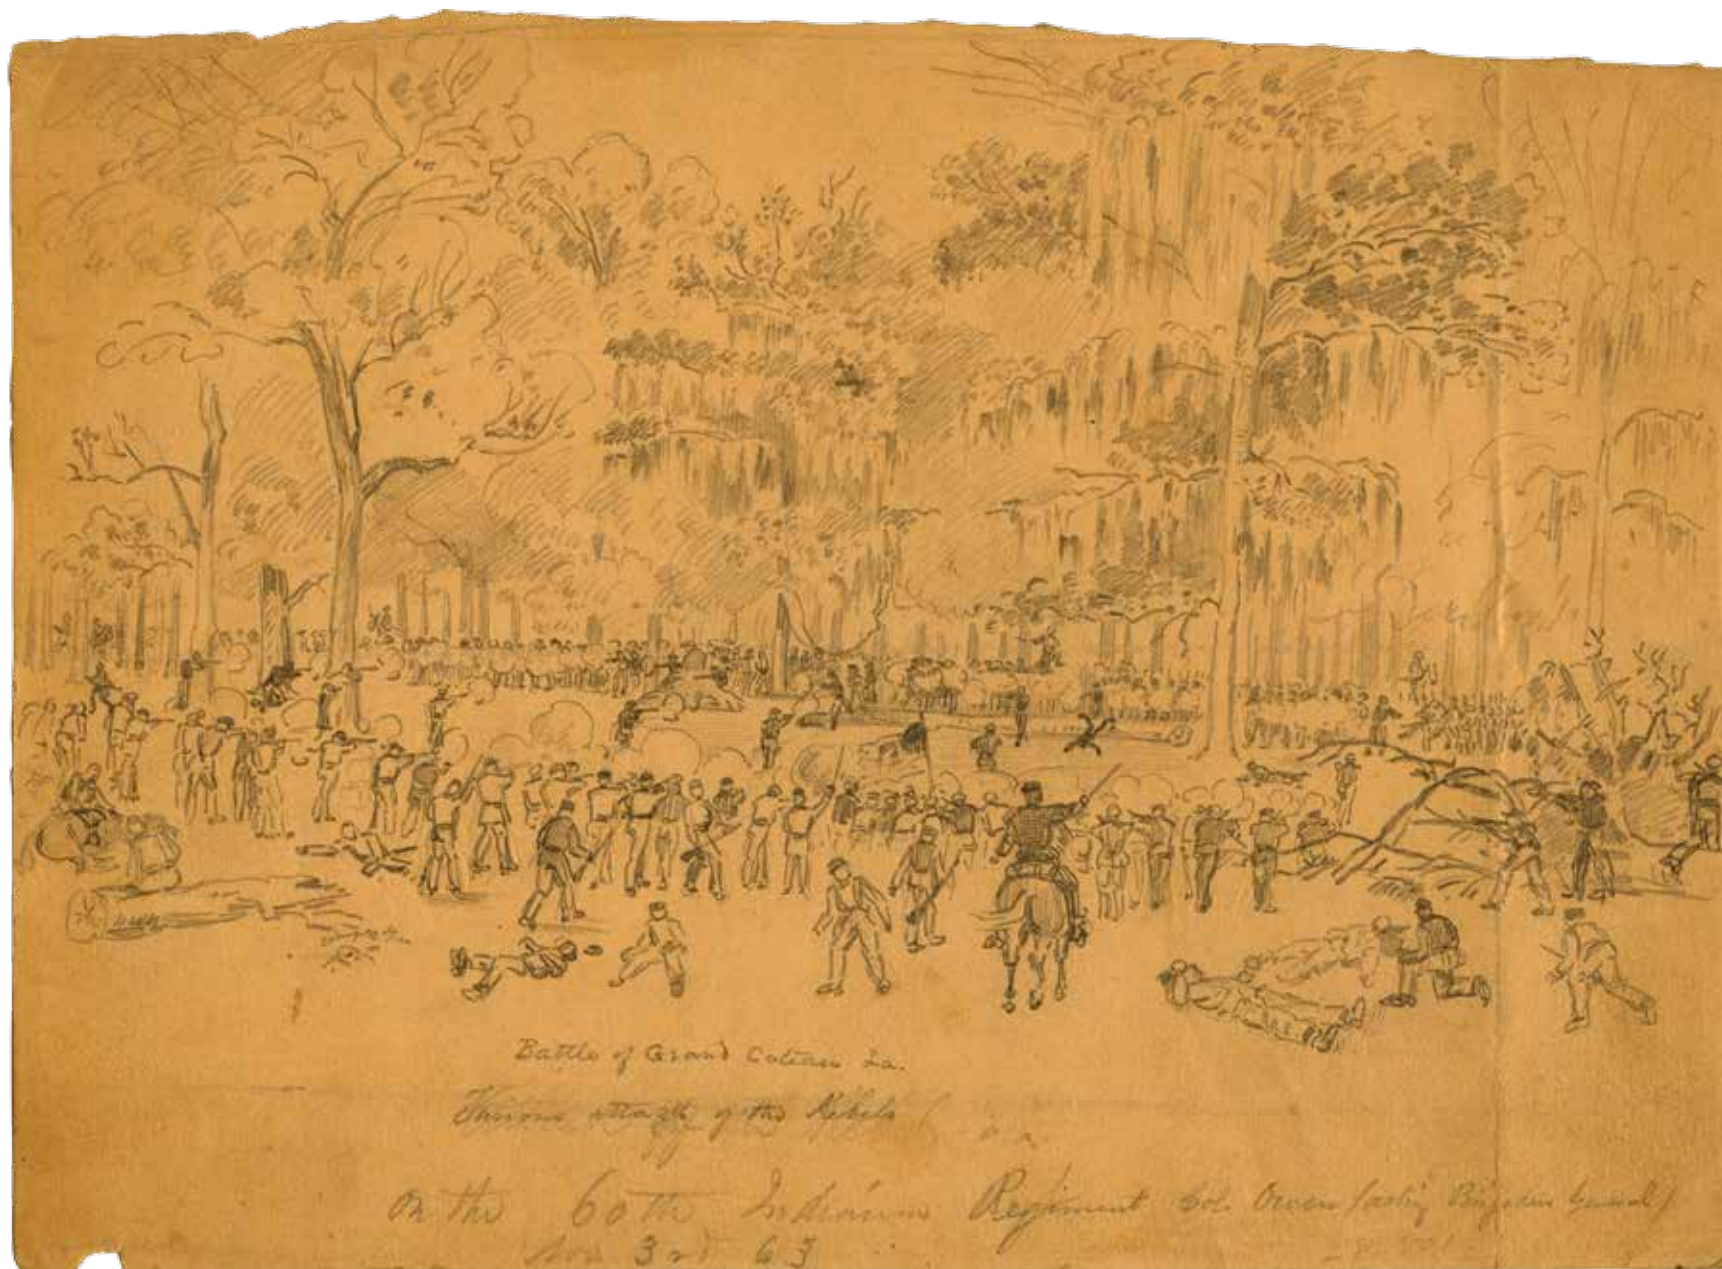 Battle of Grand Coteau La.
Furious attack of the Rebels
On the 60th Indiana Regiment Col. Owen (acting Brigadier General)
Nov 3rd 63